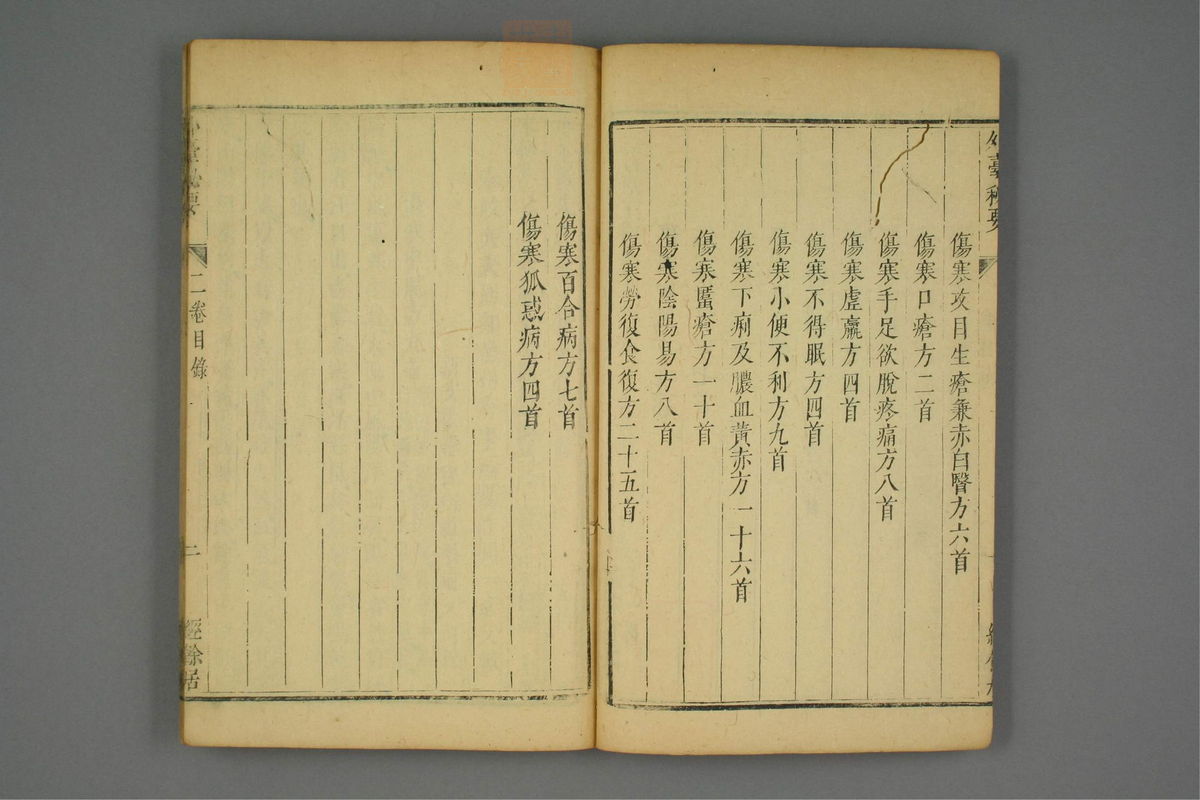 外臺秘要
傷寒攻目生瘡兼赤白瞖方六首
傷寒口瘡方二首
傷寒手足欲脫疼痛方八首
傷寒虛羸方四首
傷寒不得眠方四首
傷寒小便不利方九首
傷寒下痢及膿血黃赤方一十六首
傷寒䘌瘡方一十首
傷寒陰陽易方八首
傷寒勞復食復方二十五首
傷寒百合病方七首
傷寒狐惑病方四首
二卷目錄
二
經餘居